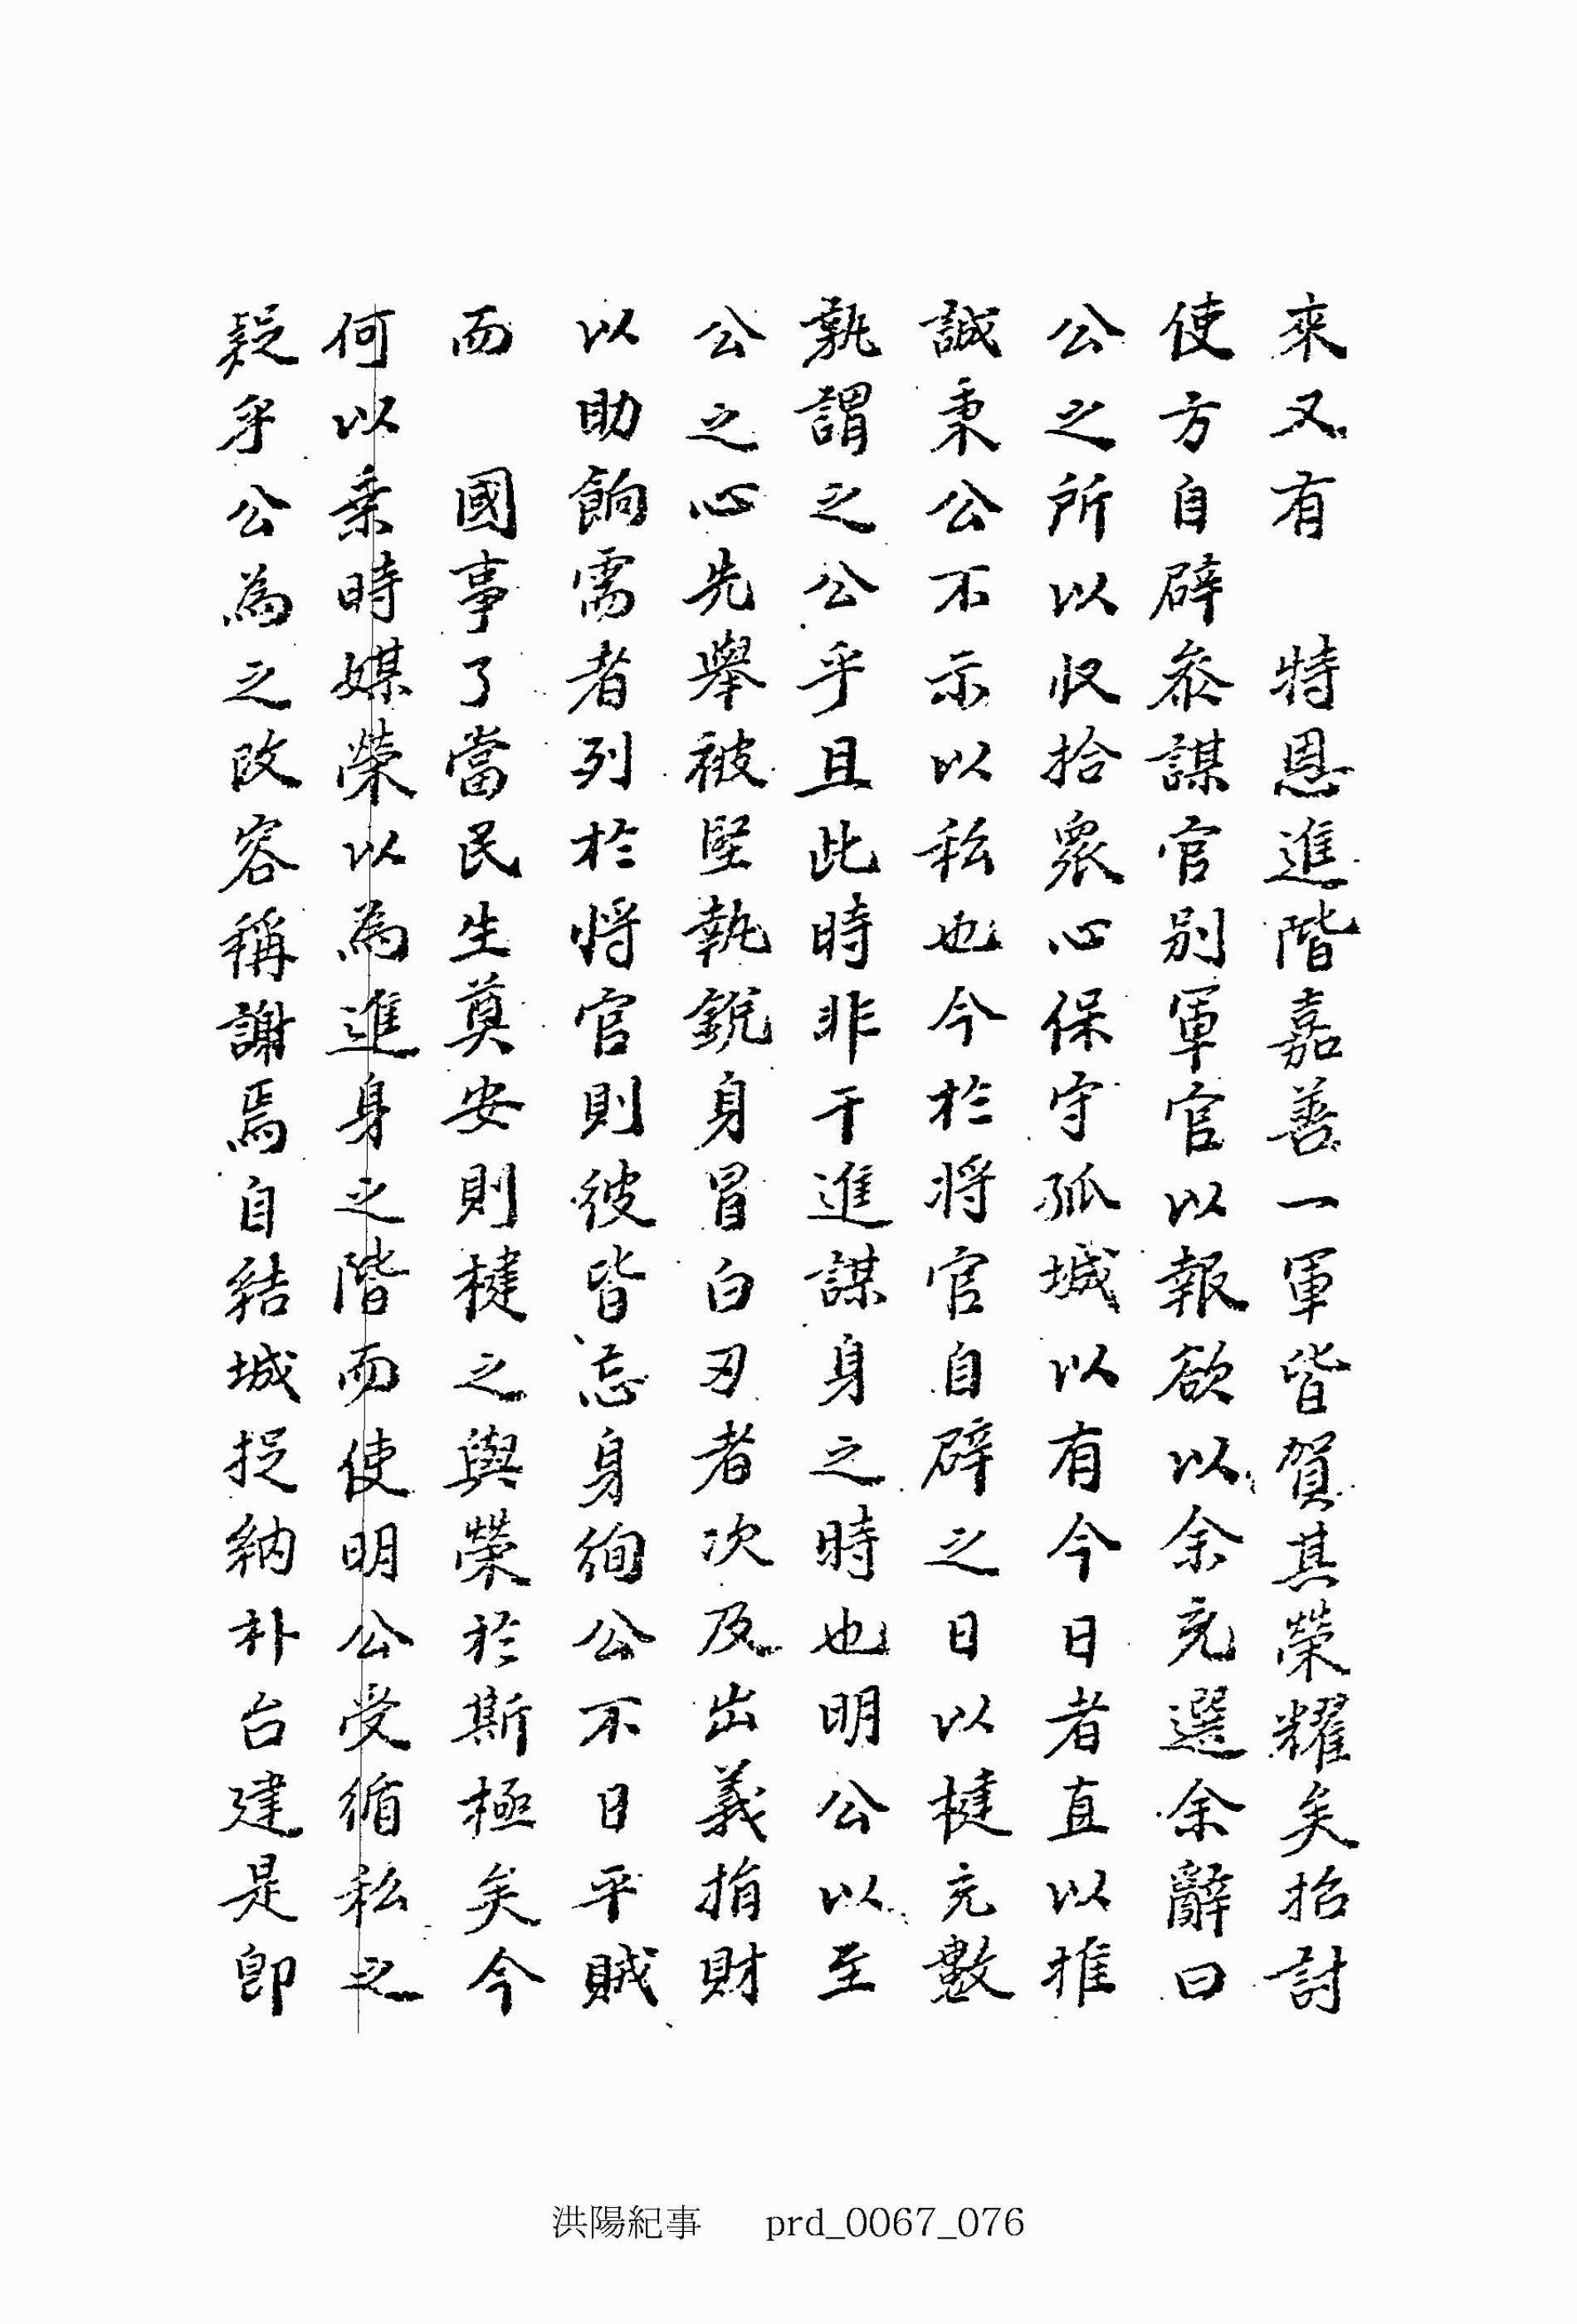 來又有　特恩進階嘉善一軍皆賀其榮耀矣招討
使方自辟叅謀官別軍官以報欲以余充選余辭曰
公之所以收拾衆心保守孤城以有今日者直以推
誠秉公不示以私也今於将官自辟之日以楗充數
孰謂之公乎且此時非干進謀身之時也明公以至
公之心先舉被堅執銳身冒白刃者次及出義捐財
以助餉需者列於将官則彼皆忘身徇公不日平賊
而　國事了當民生奠安則楗之與榮於斯極矣今
何以乗時媒榮以為進身之階而使明公受循私之
疑乎公為之改容稱謝焉自結城捉納朴台建是卽
洪陽紀事　prd_0067_076